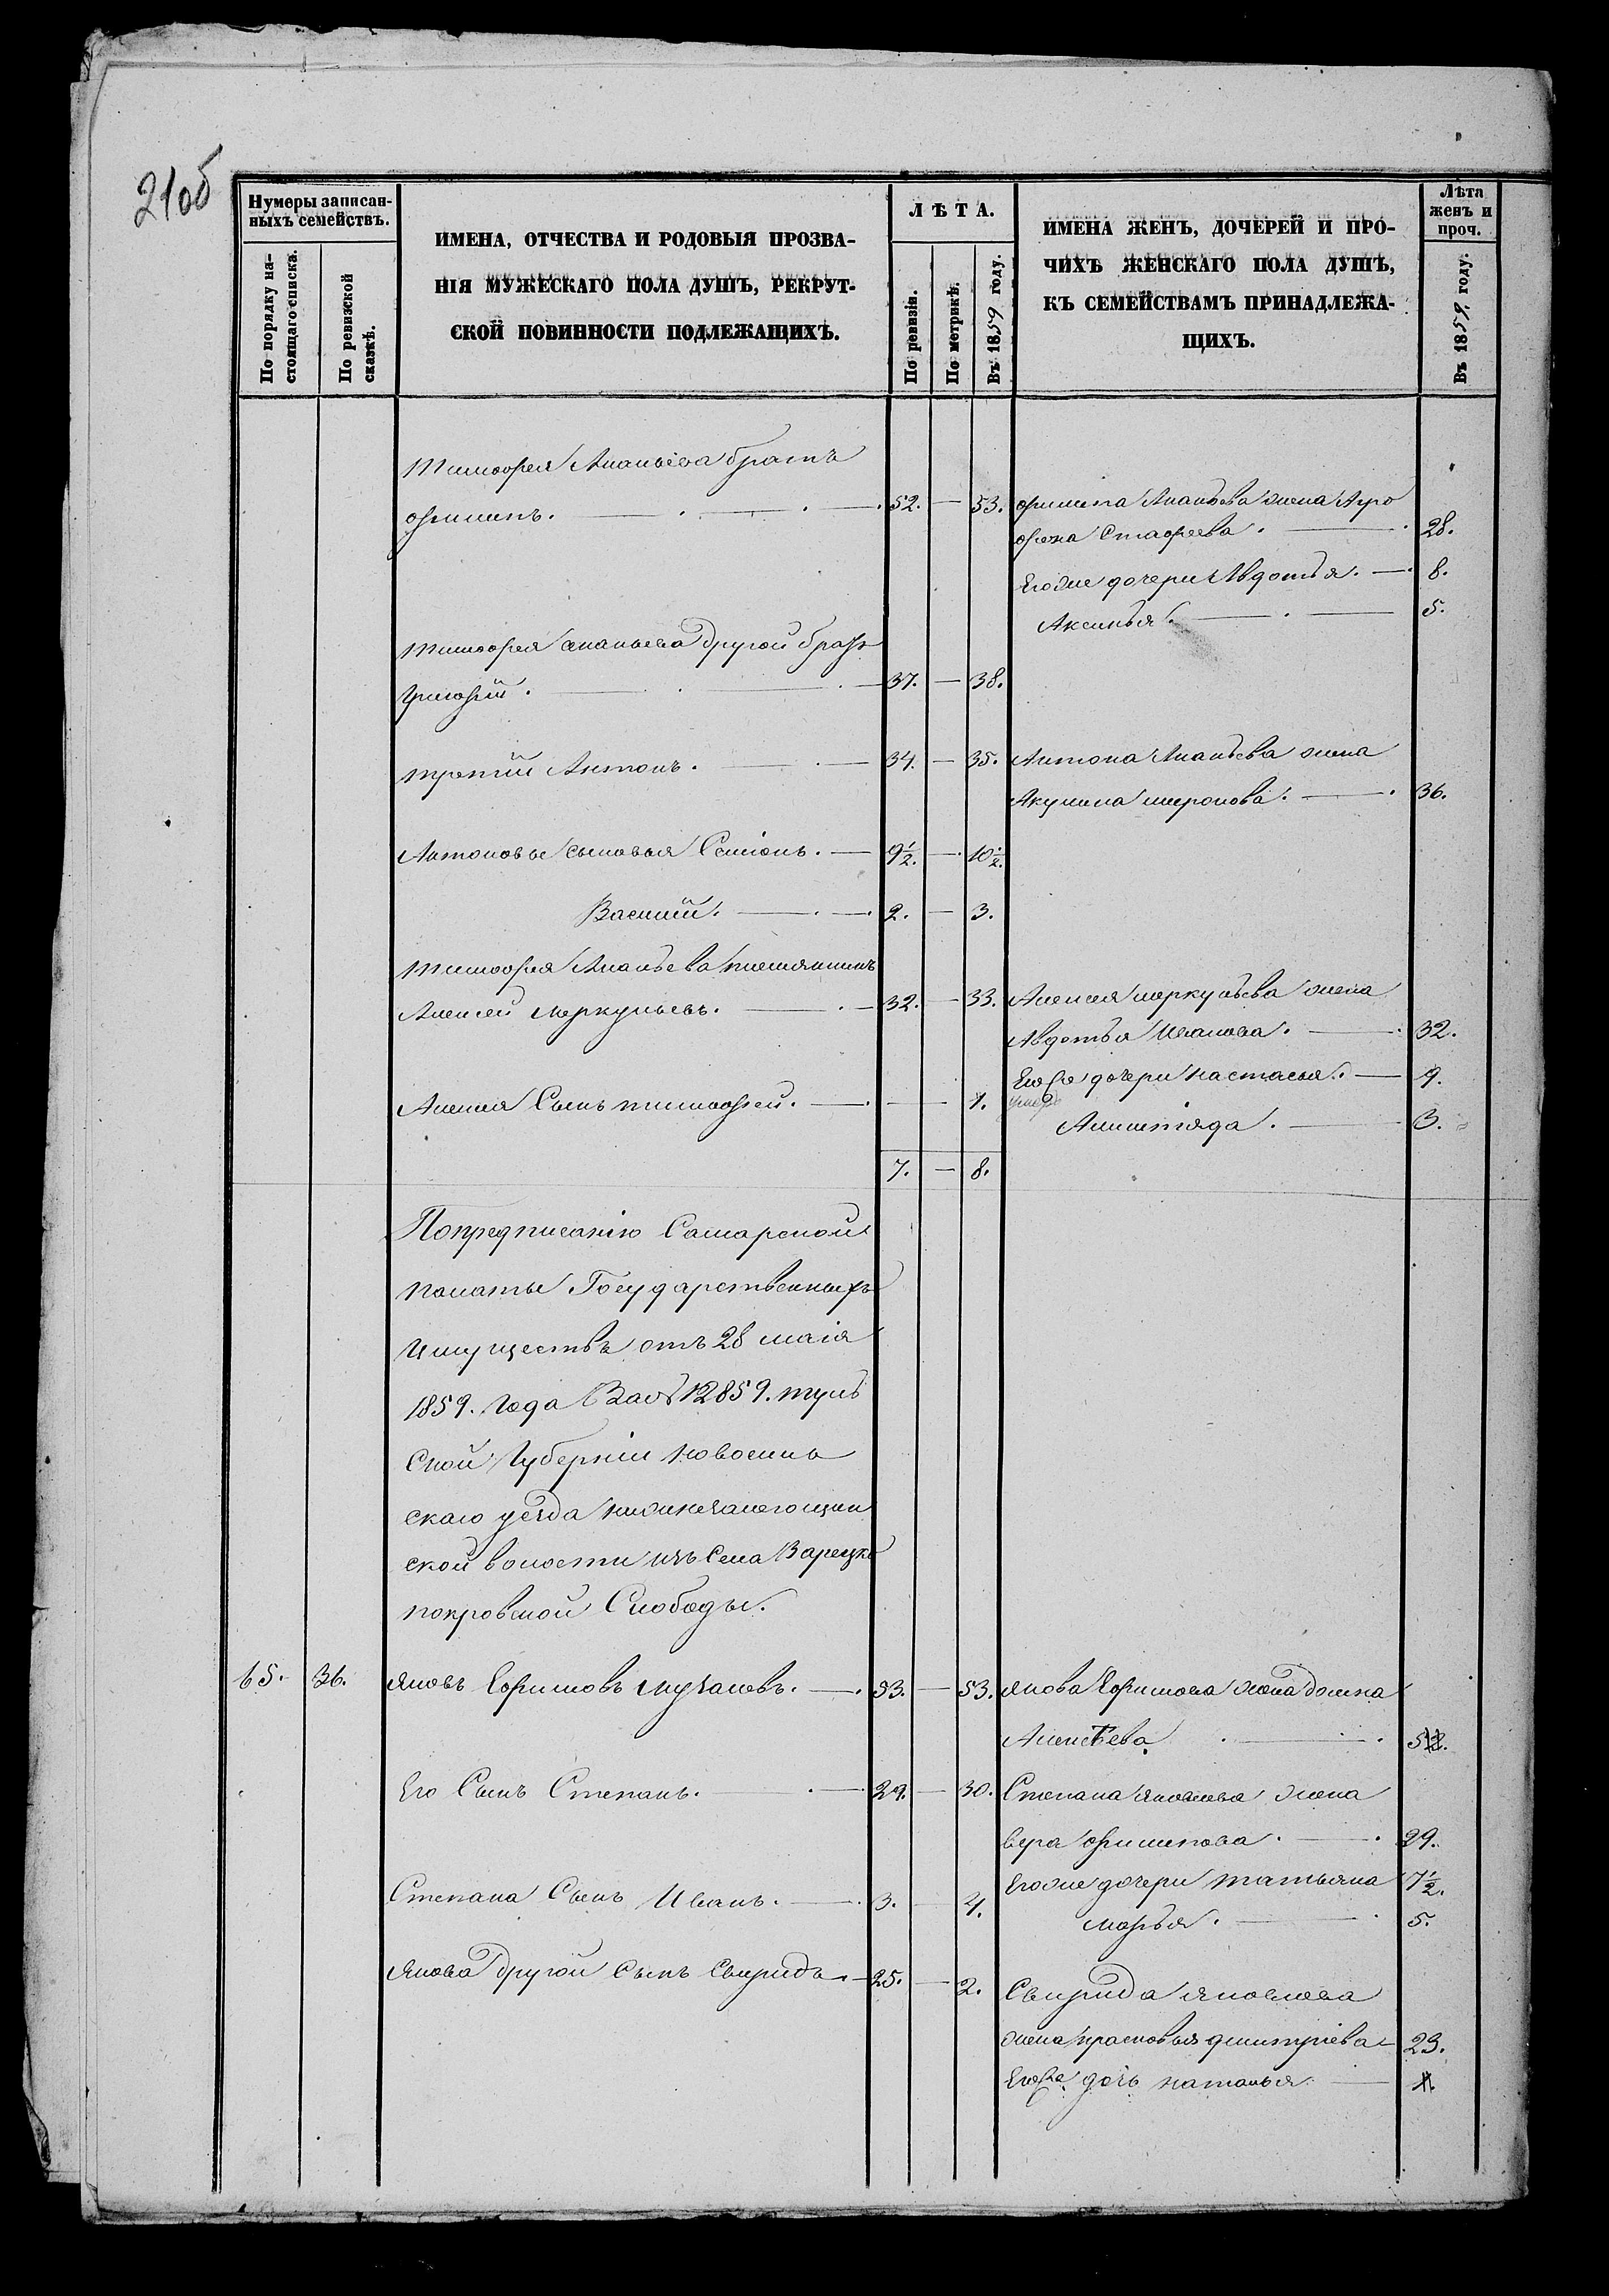 21об
Нумеры записан-
ныхъ семействъ.
По порядку на-
стоящаго списка.
По ревизской
сказкѣ.
ИМЕНА, ОТЧЕСТВА И РОДОВЫЯ ПРОЗВА-
НІЯ МУЖЕСКАГО ПОЛА ДУШЪ, РЕКРУТ-
СКОЙ ПОВИННОСТИ ПОДЛЕЖАЩИХЪ.
ЛѢТА.
По ревизіи.
По метрикѣ.
Въ 1859 году.
ИМЕНА ЖЕНЪ, ДОЧЕРЕЙ И ПРО-
ЧИХЪ ЖЕНСКАГО ПОЛА ДУШЪ,
КЪ СЕМЕЙСТВАМЪ ПРИНАДЛЕЖА-
ЩИХЪ.
Лѣта
женъ и
проч.
Въ 1859 году.
Тимофея Ананьева братъ
Филипъ. 52. — 53.
Филипа Ананьева жена Агро
фена Стафеева. 28.
Егоже дочери Авдотья. 8.
Аксинья. 5.
Тимофея Ананьева другой братъ
Григорій. 37. — 38.
третій Антонъ. 34. — 35.
Антона Ананьева жена
Акулина миронова. 36.
Антоновы сыновья Семіонъ. 9½. — 10½.
Василій. 2. — 3.
Тимофея Ананьева племянникъ
Алексей Меркульевъ. 32. — 33.
Алексея меркульева жена
Авдотья Иванова. 32.
Егоже дочери настасья. 9.
Алексея Сынъ тимофей. — — 1.
3.
7. — 8.
Попредписанію Самарской
палаты Государственныхъ
имуществъ отъ 28 маія
1859. года за № 12859. туль
ской Губерніи новосиль
скаго уезда
ской волости изъ Села
покровской Слободы.
65. 36. Яковъ Ефимовъ 53. — 53.
Якова Ефимова жена домна
Алексеева
Его Сынъ Степанъ. 29. — 30.
Степана яковлева жена
вера филипова. 29.
Степана Сынъ Иванъ. 3. 4.
Егоже дочери татьяна 7½.
марья. 5.
Якова другой сынъ Свиридъ. 25. — 2.
Свирида яковлева
жена прасковья дмитріева 23.
Егоже дочь наталья